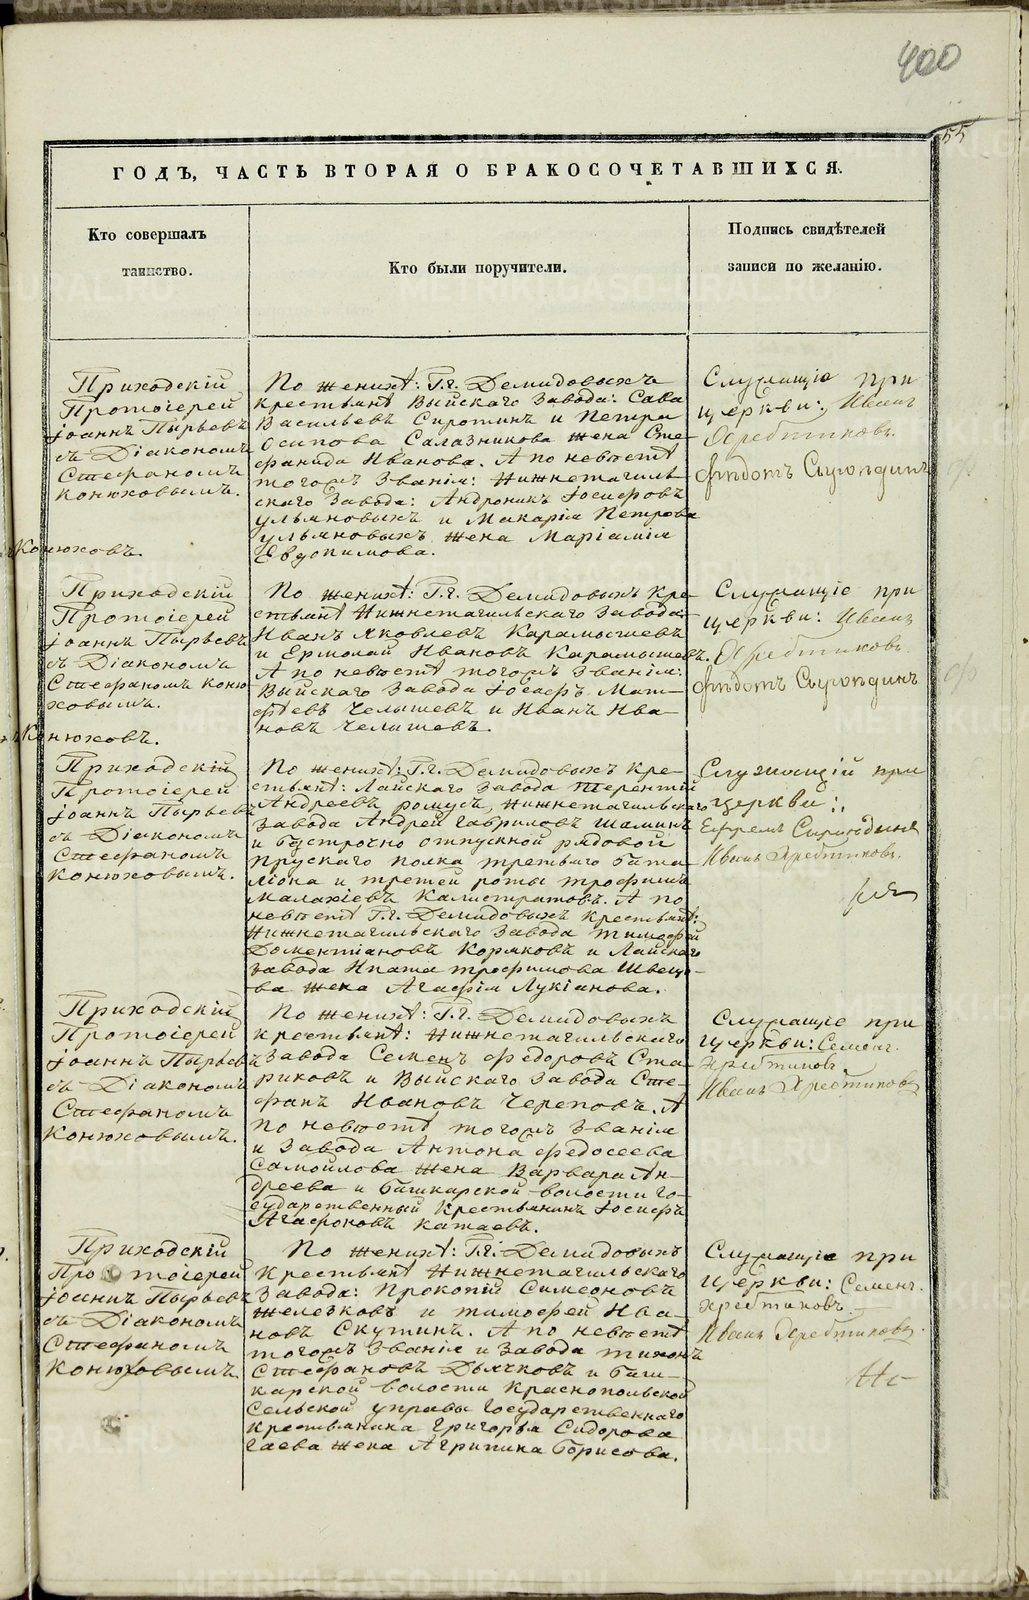 400
55
ГОДЪ, ЧАСТЬ ВТОРАЯ О БРАКОСОЧЕТАВШИХСЯ.
Кто совершалъ
таинство.
Кто были поручители.
Подпись свидѣтелей
записи по желанію.
Приходскій
Протоіерей
Іоаннъ Пырьевъ
съ Діакономъ
Стефаномъ
Конюховымъ.
Конюховъ.
По женихѣ: Г.г. Демидовыхъ
крестьянѣ Выйскаго завода: Сава
Васильевъ Сиротинъ и Петра
Осипова Салазникова жена Сте-
фанида Иванова. А по невѣстѣ
тогожъ званія: Нижнетагиль-
скаго завода: Андроникъ Іосифовъ
Ульяновыхъ и Макарія Петрова
Ульяновыхъ жена Маріамія
Евдокимова.
Служащіе при
церкви: Иванъ
Хребтиковъ.
Федотъ Сыропдинъ
Приходскій
Протоіерей
Іоаннъ Пырьевъ
съ Діакономъ
Стефаномъ Коню-
ховымъ.
Конюховъ.
По женихѣ: Г.г. Демидовыхъ кре-
стьянѣ Нижнетагильскаго завода:
Иванъ Яковлевъ Карамышевъ
и Ермолай Ивановъ Карамышевъ.
А по невѣстѣ тогожъ званія:
Выйскаго завода Іосифъ Мат-
фѣевъ Челышевъ и Иванъ Ива-
новъ Челышевъ.
Служащіе при
церкви: Иванъ
Хребтиковъ
Федотъ Сыропдинъ
Приходскій
Протоіерей
Іоаннъ Пырьевъ
съ Діакономъ
Стефаномъ
Конюховымъ.
По женихѣ: Г.г. Демидовыхъ кре-
стьянѣ: Лайскаго завода Терентій
Андреевъ Нижнетагильскаго
завода Андрей Гавриловъ Шаминъ
и безсрочно отпускной рядовой
Прускаго полка третьяго бата-
ліона и третей роты Трофимъ
Малахіевъ Калистратовъ. А по
невѣстѣ Г.г. Демидовыхъ крестьянѣ:
Нижнетагильскаго завода Тимофей
Доментіановъ Кормковъ и Лайскаго
завода Ипата Трофимова Швецо-
ва жена Агафія Лукіанова.
Служащій при
церкви:
Ефремъ
Иванъ Хребтиковъ.
Приходскій
Протоіерей
Іоаннъ Пырьевъ
съ Діакономъ
Стефаномъ
Конюховымъ.
По женихѣ: Г.г. Демидовыхъ
крестьянѣ: Нижнетагильскаго
завода Семенъ Федоровъ Ста-
риковъ и Выйскаго завода Сте-
фанъ Ивановъ Череповъ. А
по невѣстѣ тогожъ званія
и завода Антона Федосеева
Самойлова жена Варвара Ан-
дреева и Башкарской волости го-
сударственный крестьянинъ Іосифъ
Агафоновъ Катаевъ.
Служащіе при
церкви: Семенъ
Хребтиковъ
Иванъ Хребтиковъ
Приходскій
Протоіерей
Іоаннъ Пырьевъ
съ Діакономъ
Стефаномъ
Конюховымъ
По женихѣ: Г.г. Демидовыхъ
крестьянѣ Нижнетагильскаго
завода: Прокопій Симеоновъ
Железковъ и Тимофей Ива-
новъ Скутинъ. А по невѣстѣ
тогожъ званія и завода Тихонъ
Стефановъ Дьячковъ и Баш-
карской волости Краснопольской
Сельской управы Государственнаго
крестьянина Григорья Сидорова
Гаева жена Агрипина Борисова.
Служащіе при
церкви: Семенъ
Хребтиковъ.
Иванъ Хребтиковъ.
METRIKI.GASO-URAL.RU